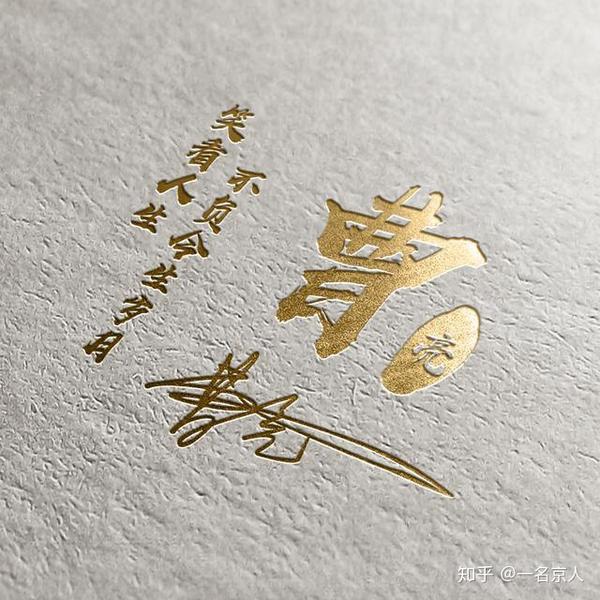 笑看人生
不负今生岁月
曹
亮
曹亮
知乎 @一名京人